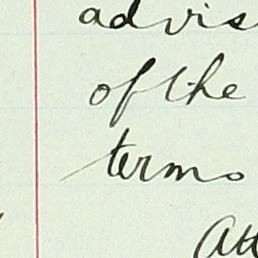 advis
of the
terms
Att